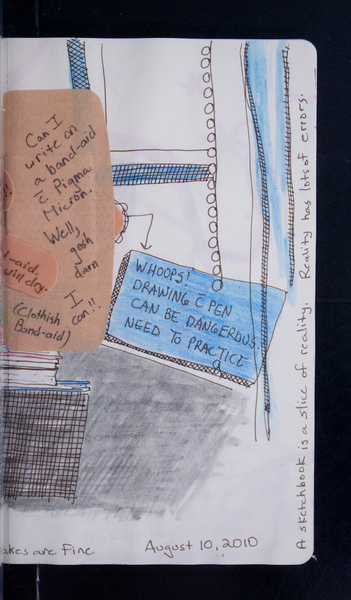 Can I
write on
a band-aid
c̄ Pigma
Micron.
Well,
gosh
darn
I
can!!
-aid.
will dry.
(Clothish
Band-aid)
WHOOPS!
DRAWING C̄ PEN
CAN BE DANGEROUS.
NEED TO PRACTICE
A sketchbook is a slice of reality. Reality has lots of errors.
akes are Fine
August 10, 2010